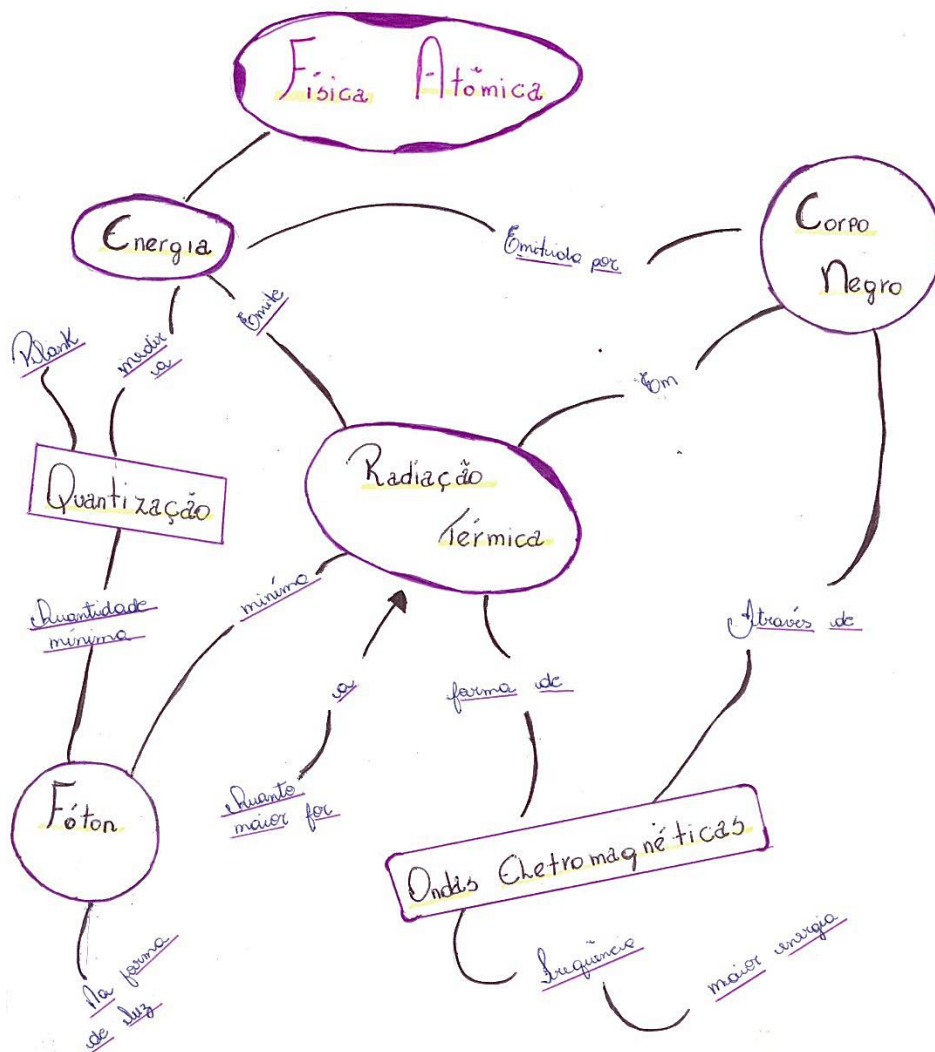 Física Atômica
Energia
Emitida por
Corpo
Negro
Plank
medir
a
Emite
Em
Quantização
Radiação
Térmica
Quantidade
mínima
mínima
a
forma de
Através de
Fóton
Quanto
maior for
Ondas Eletromagnéticas
Na forma
de luz
Freqüência
maior energia